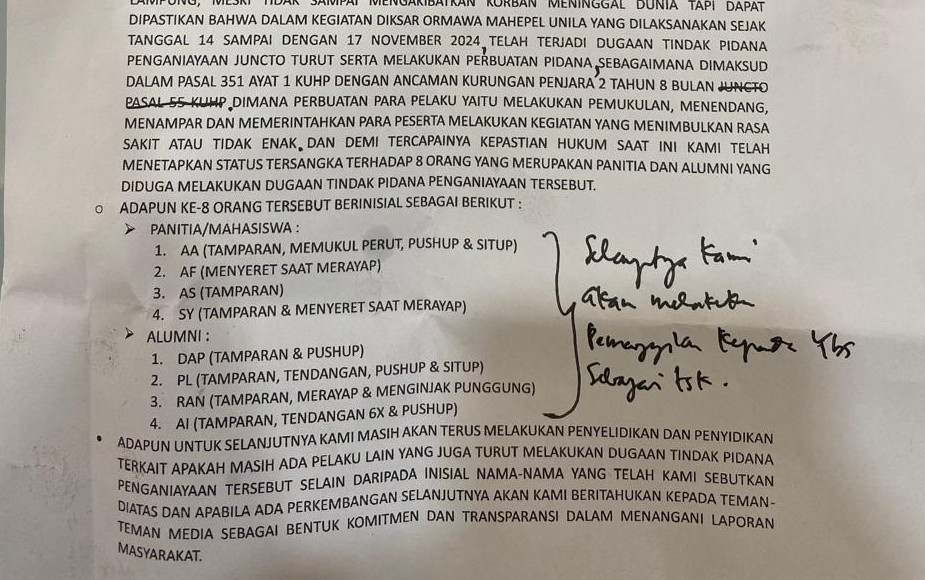 LAMPUNG, MESKI TIDAK SAMPAI MENGAKIBATKAN KORBAN MENINGGAL DUNIA TAPI DAPAT
DIPASTIKAN BAHWA DALAM KEGIATAN DIKSAR ORMAWA MAHEPEL UNILA YANG DILAKSANAKAN SEJAK
TANGGAL 14 SAMPAI DENGAN 17 NOVEMBER 2024, TELAH TERJADI DUGAAN TINDAK PIDANA
PENGANIAYAAN JUNCTO TURUT SERTA MELAKUKAN PERBUATAN PIDANA, SEBAGAIMANA DIMAKSUD
DALAM PASAL 351 AYAT 1 KUHP DENGAN ANCAMAN KURUNGAN PENJARA 2 TAHUN 8 BULAN JUNCTO
PASAL 55 KUHP. DIMANA PERBUATAN PARA PELAKU YAITU MELAKUKAN PEMUKULAN, MENENDANG,
MENAMPAR DAN MEMERINTAHKAN PARA PESERTA MELAKUKAN KEGIATAN YANG MENIMBULKAN RASA
SAKIT ATAU TIDAK ENAK. DAN DEMI TERCAPAINYA KEPASTIAN HUKUM SAAT INI KAMI TELAH
MENETAPKAN STATUS TERSANGKA TERHADAP 8 ORANG YANG MERUPAKAN PANITIA DAN ALUMNI YANG
DIDUGA MELAKUKAN DUGAAN TINDAK PIDANA PENGANIAYAAN TERSEBUT.
o ADAPUN KE-8 ORANG TERSEBUT BERINISIAL SEBAGAI BERIKUT :
➢ PANITIA/MAHASISWA :
1. AA (TAMPARAN, MEMUKUL PERUT, PUSHUP & SITUP)
2. AF (MENYERET SAAT MERAYAP)
3. AS (TAMPARAN)
4. SY (TAMPARAN & MENYERET SAAT MERAYAP)
➢ ALUMNI :
1. DAP (TAMPARAN & PUSHUP)
2. PL (TAMPARAN, TENDANGAN, PUSHUP & SITUP)
3. RAN (TAMPARAN, MERAYAP & MENGINJAK PUNGGUNG)
4. AI (TAMPARAN, TENDANGAN 6X & PUSHUP)
Selanjutnya Kami
akan melakukan
Pemanggilan Kepada Ybs
Sebagai tsk.
• ADAPUN UNTUK SELANJUTNYA KAMI MASIH AKAN TERUS MELAKUKAN PENYELIDIKAN DAN PENYIDIKAN
TERKAIT APAKAH MASIH ADA PELAKU LAIN YANG JUGA TURUT MELAKUKAN DUGAAN TINDAK PIDANA
PENGANIAYAAN TERSEBUT SELAIN DARIPADA INISIAL NAMA-NAMA YANG TELAH KAMI SEBUTKAN
DIATAS DAN APABILA ADA PERKEMBANGAN SELANJUTNYA AKAN KAMI BERITAHUKAN KEPADA TEMAN-
TEMAN MEDIA SEBAGAI BENTUK KOMITMEN DAN TRANSPARANSI DALAM MENANGANI LAPORAN
MASYARAKAT.